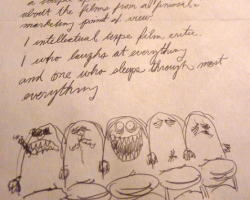 about the films from
marketing point of view.
I intellectual type film critic.
I who laughs at everything
and one who sleeps through most
everything